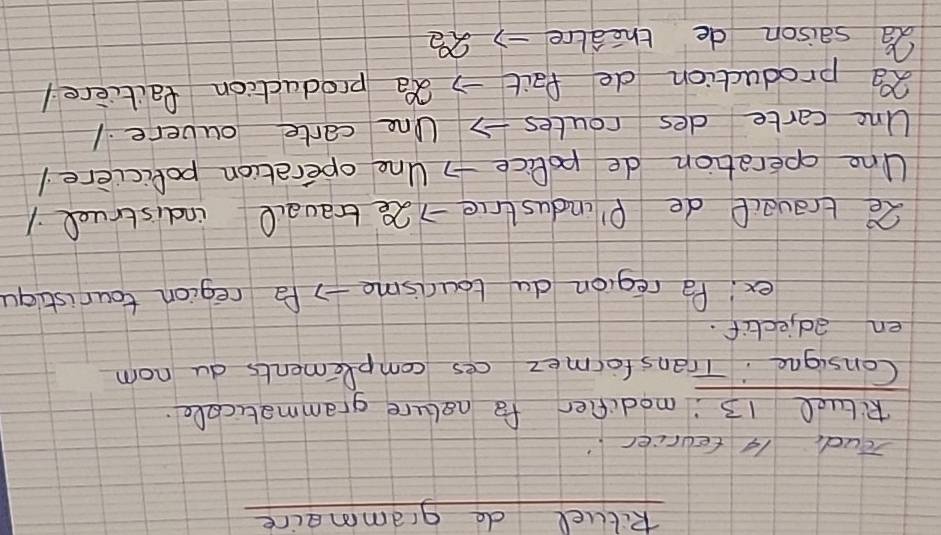 Rituel de grammaire
Jeudi 14 février :
Rituel 13 : modifier la nature grammaticale.
Consigne : Transformez ces compléments du nom
en adjectif.
ex : la région du tourisme → la région touristiqu
Le travail de l'industrie → Le travail indistruel /
Une opération de police → Une opération policière /
Une carte des routes → Une carte ouvere. /
La production de lait → La production laitière /
La saison de théâtre → La